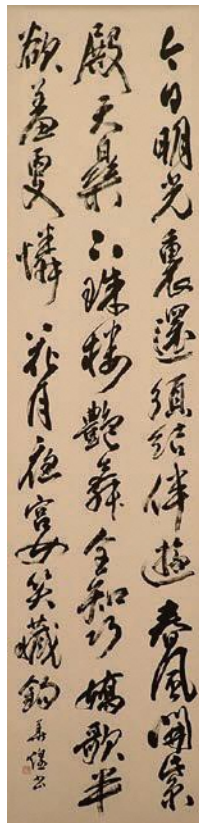 今日明光裏還須結伴遊春風開紫
殿天樂下珠樓艷舞全知巧嬌歌半
欲羞更憐花月夜宮女笑藏鈎